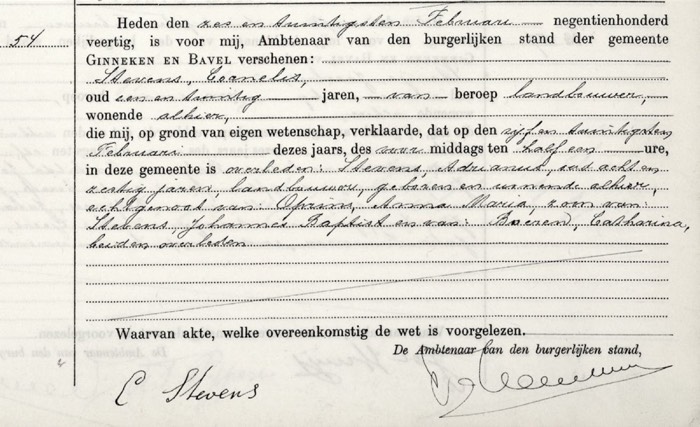 54
Heden den zes en twintigsten Februari negentienhonderd
veertig, is voor mij, Ambtenaar van den burgerlijken stand der gemeente
GINNEKEN EN BAVEL verschenen:
Stevens, Cornelis,
oud een en twintig jaren, van beroep landbouwer,
wonende alhier,
die mij, op grond van eigen wetenschap, verklaarde, dat op den vijf en twintigsten
Februari dezes jaars, des voor middags ten half een ure,
in deze gemeente is overleden: Stevens, Adrianus, oud acht en
zestig jaren, landbouwer, geboren en wonende alhier,
echtgenoot van: Oprins, Anna Maria, zoon van:
Stevens, Johannes Baptist en van: Boeren, Catharina,
beiden overleden
Waarvan akte, welke overeenkomstig de wet is voorgelezen.
De Ambtenaar van den burgerlijken stand,
C Stevens